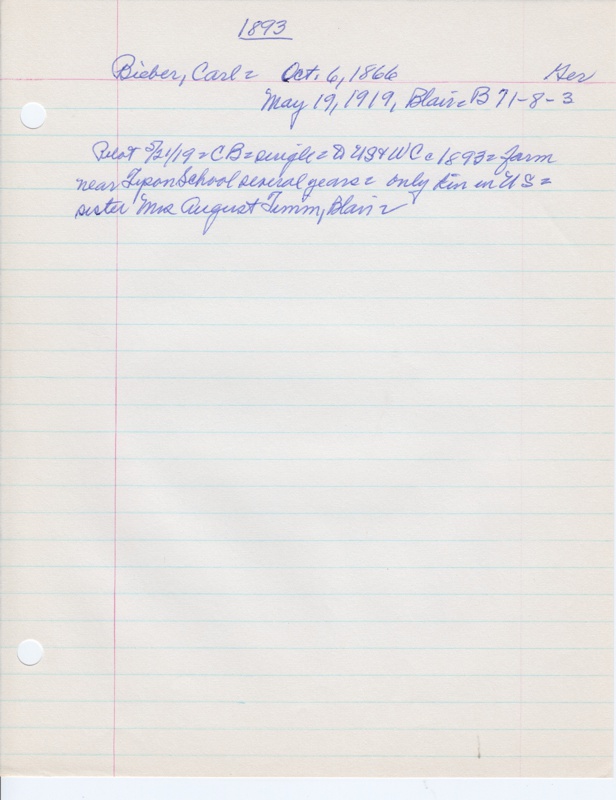 1893
Bieber, Carl = Oct. 6, 1866 Ger
May 19, 1919, Blair = B 71-8-3
Pilot 5/21/19 = CB = single = to US & WC = 1893 = farm
near School several years = only kin in US =
sister Mrs August Timm, Blair =